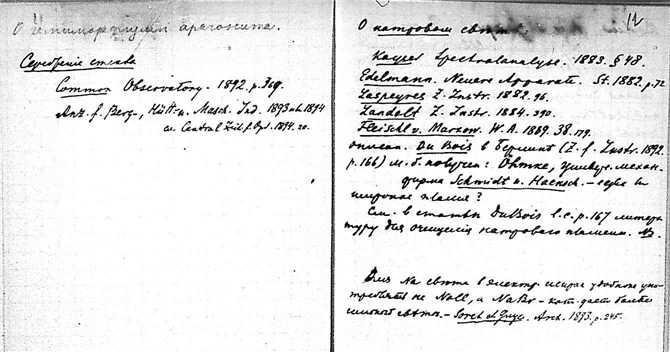 О арагонита.
Серебреніе стекла
Common Observatory. 1892. p. 369.
Anz. f. Berg-, Hütt- u. Masch. Ind. 1893 1894
Central Zeit. f. Opt. 1894. 20.
12
О натровом свѣтѣ.
Kayser Spectralanalyse. 1883. § 48.
Edelmann. Neuere Apparate. St. 1882. p. 72
Laspeyres Z. Instr. 1882. 96.
Landolt Z. Instr. 1884. 390.
Fleischl v. Marxow. W. A. 1889. 38. 179.
описан. Du Bois в Берлинѣ (Z. f. Instr. 1892.
p. 166) м. б. получен: механ.
фирма Schmidt u. Haensch. –
широкое пламя?
См. в статьѣ DuBois l. c. p. 167 литера-
туру для очищенія натроваго пламени. №.
Для Na свѣта в электр. искрѣ удобнѣе упо-
треблять не NaCl, а NaBr – кот. дает болѣе
сильный свѣтъ. – Soret et Guye. Arch. 1893. p. 245.